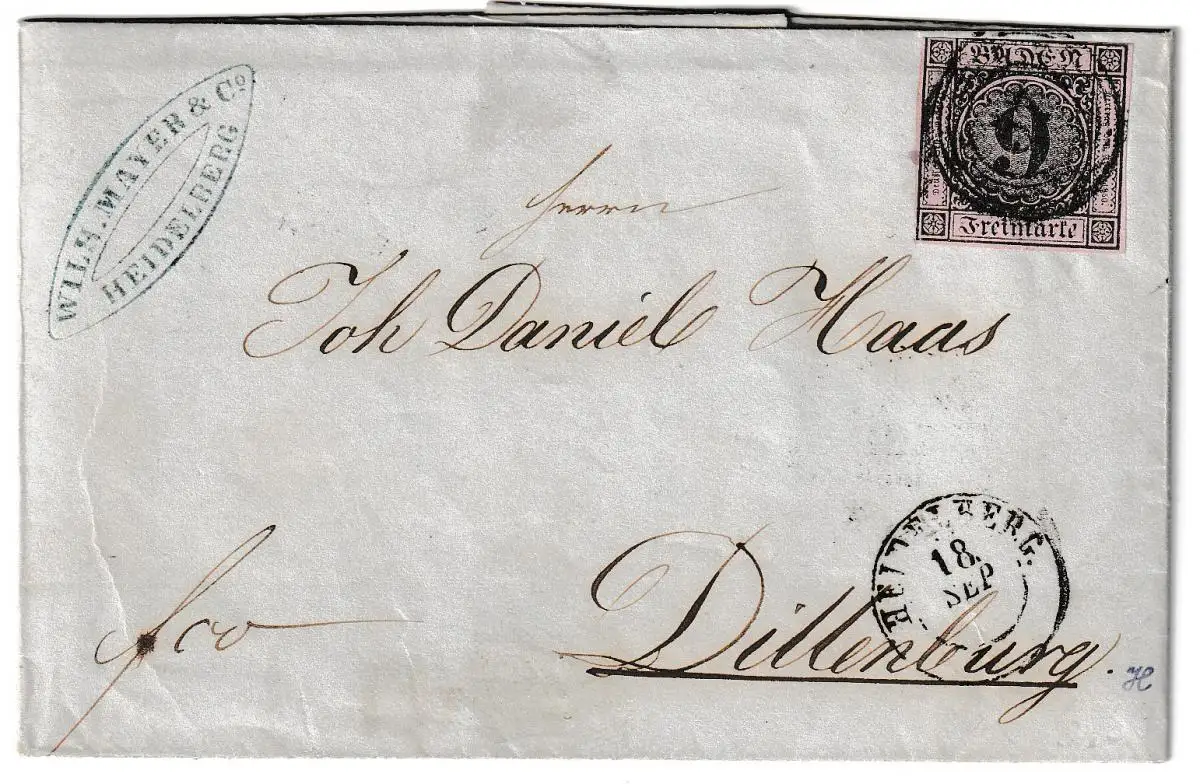 WILH. MAYER & Co
HEIDELBERG
BADEN
9
Freimarke
Herrn
Joh Daniel Haas
HEIDELBERG.
18.
SEP
fco
Dillenburg.
H